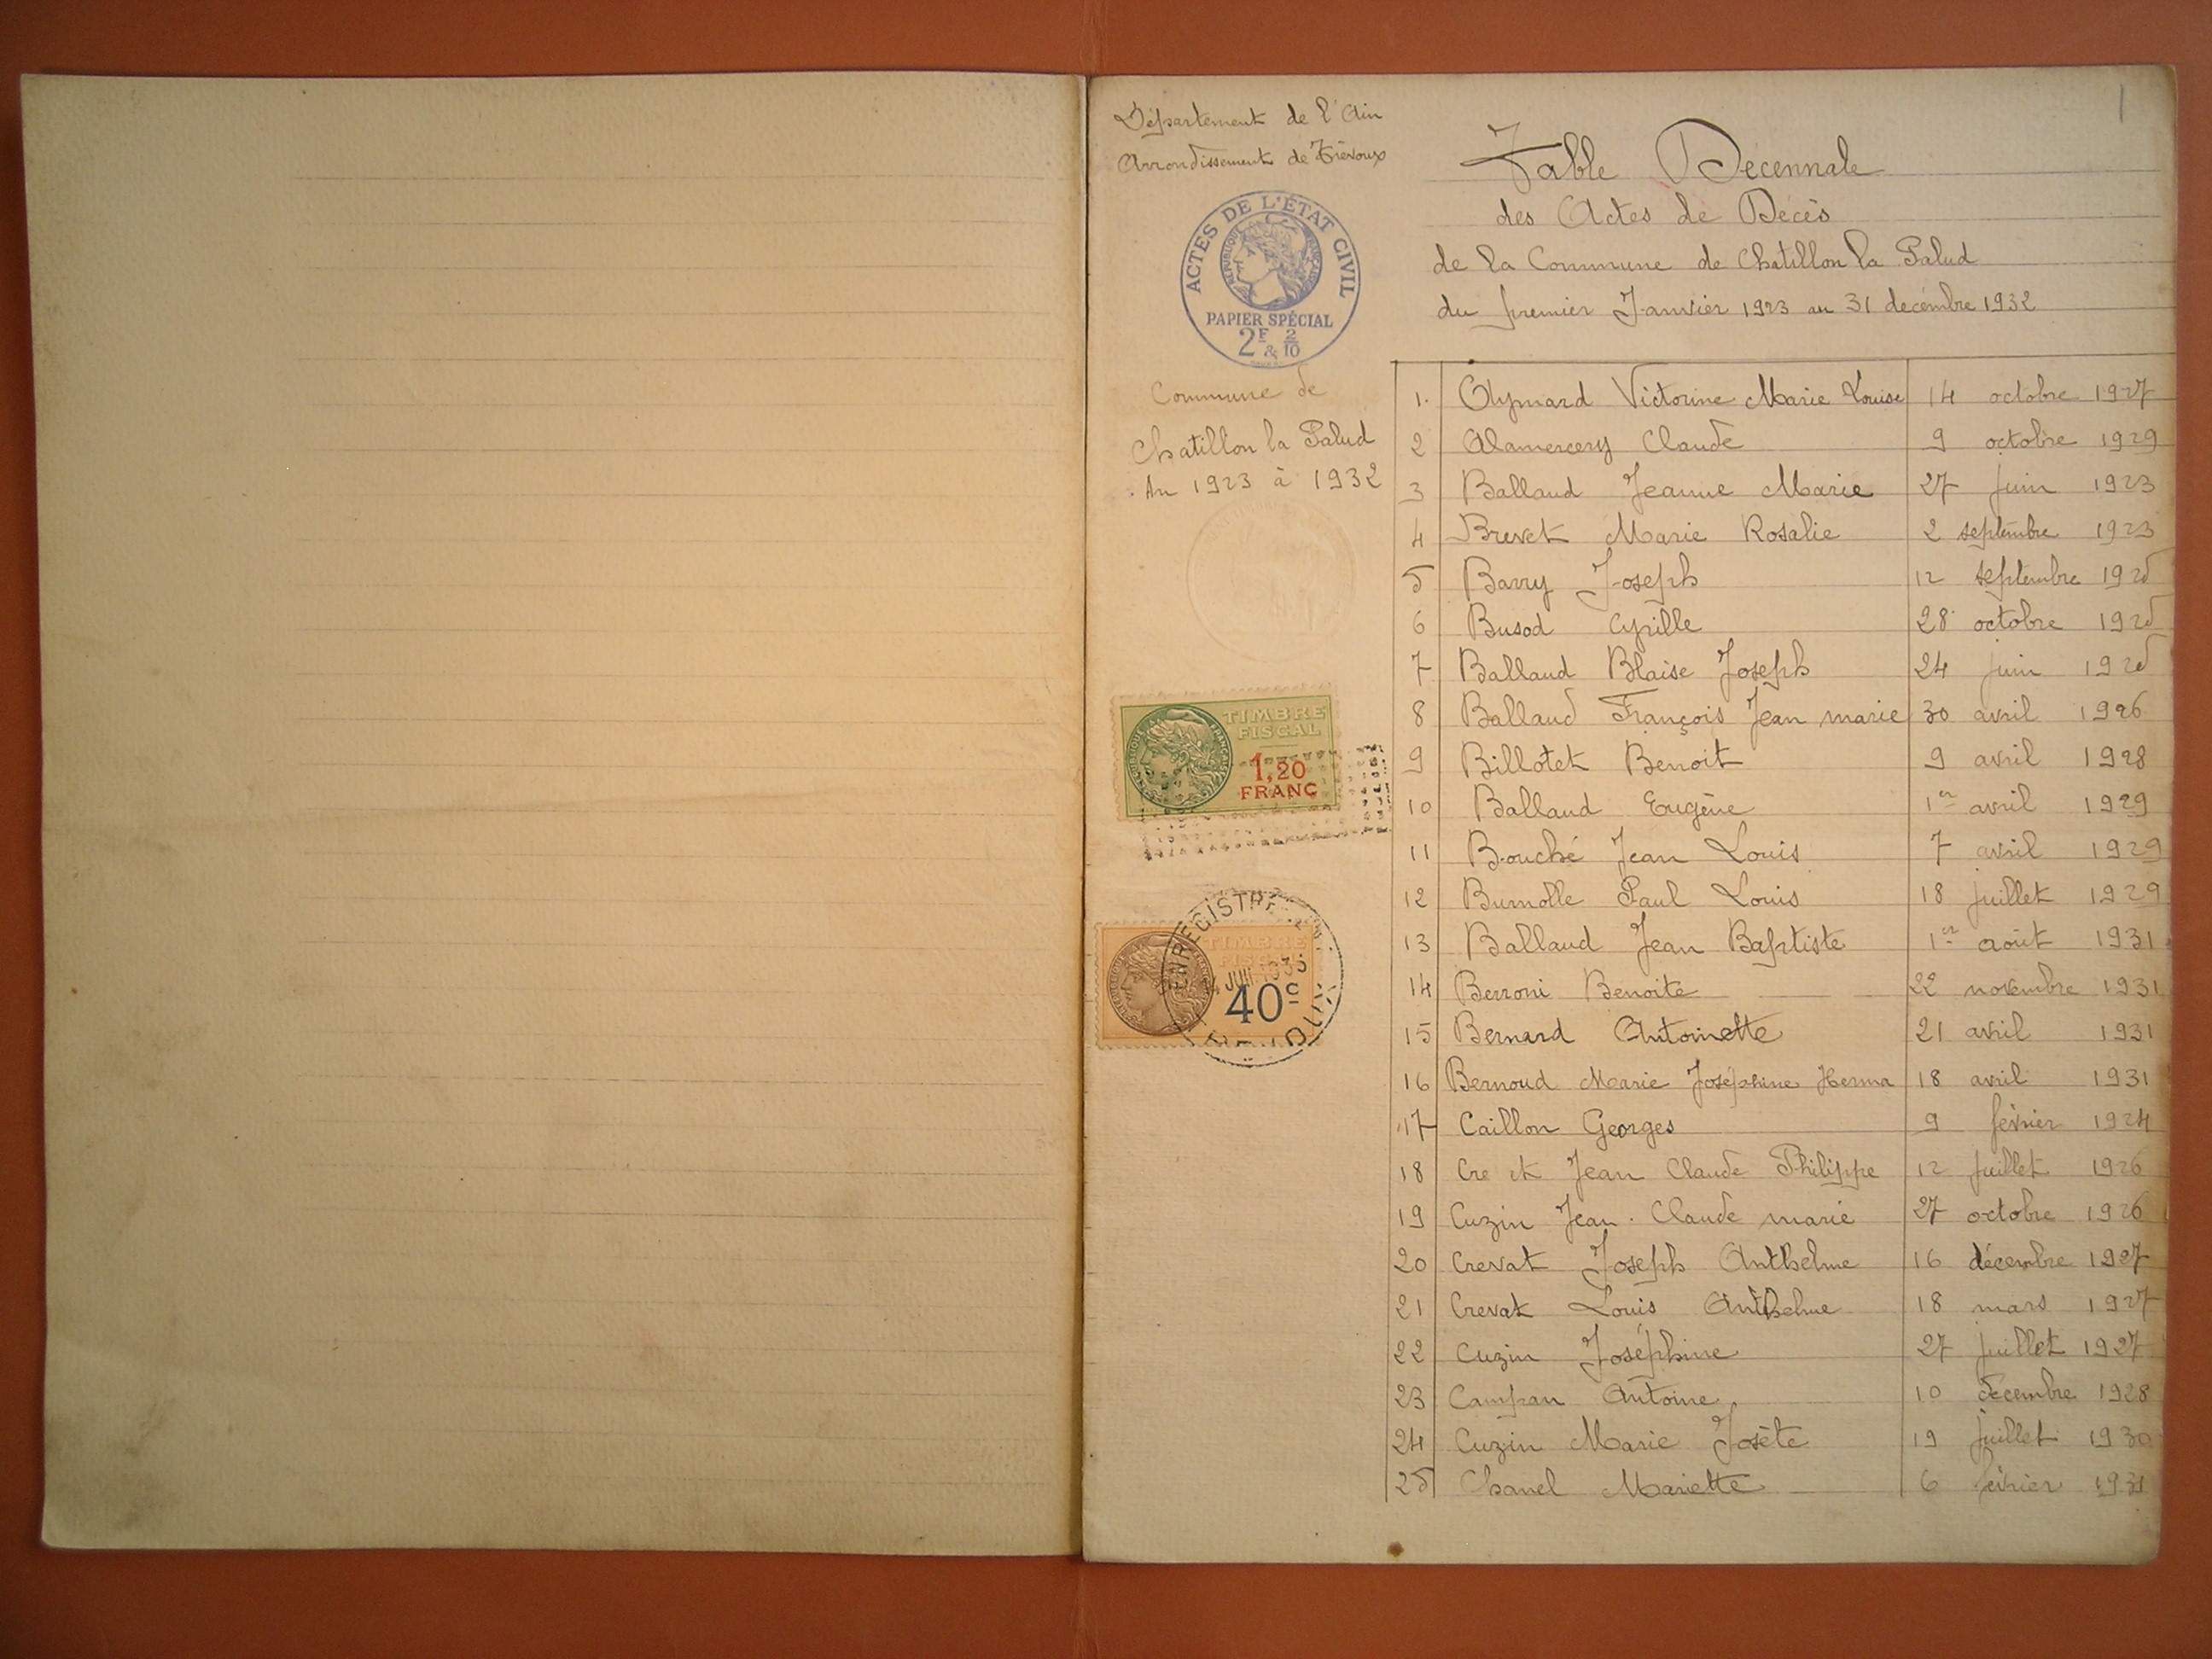 Département de l'Ain
Arrondissement de Trévoux
ACTES DE L'ÉTAT CIVIL
RÉPUBLIQUE FRANÇAISE
PAPIER SPÉCIAL
2F & 2/10
Commune de
Chatillon la Palud
An 1923 à 1932
TIMBRE
FISCAL
1,20
FRANC
ENREGISTRE
TIMBRE
40c
1
Table Décennale
des Actes de Décès
de la Commune de Chatillon la Palud
du premier Janvier 1923 au 31 decémbre 1932
1. Aymard Victorine Marie Louise 14 octobre 1927
2 Alamercery Claude 9 octobre 1929
3 Balland Jeanne Marie 27 juin 1923
4 Brevet Marie Rosalie 2 septembre 1923
5 Barry Joseph 12 septembre 1925
6 Busod Cyrille 28 octobre 1925
7 Balland Blaise Joseph 24 juin 1925
8 Balland François Jean marie 30 avril 1926
9 Billotet Benoit 9 avril 1928
10 Balland Eugène 1er avril 1929
11 Bouché Jean Louis 7 avril 1929
12 Burnolle Paul Louis 18 juillet 1929
13 Balland Jean Baptiste 1er août 1931
14 Berroni Benoite 22 novembre 1931
15 Bernard Antoinette 21 avril 1931
16 Bernoud Marie Joséphine Herma 18 avril 1931
17 Caillon Georges 9 février 1924
18 Jean Claude Philippe 12 juillet 1926
19 Cuzin Jean Claude marie 27 octobre 1926
20 Crevat Joseph Anthelme 16 décembre 1927
21 Crevat Louis Anthelme 18 mars 1927
22 Cuzin Joséphine 27 juillet 1927
23 Campan Antoine 10 décembre 1928
24 Cuzin Marie Josète 19 juillet 1930
25 Chanel Mariette 6 février 1931